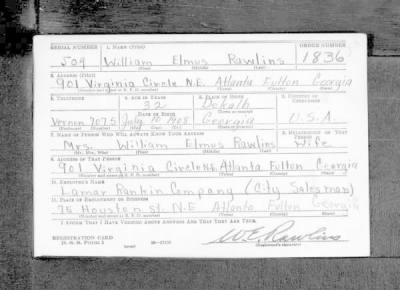 SERIAL NUMBER 1. NAME (Print) ORDER NUMBER
509 William Elmus Rawlins 1836
(First) (Middle) (Last)
2. ADDRESS (Print)
901 Virginia Circle N.E. Atlanta Fulton Georgia
(Number and street or R. F. D. number) (Town) (County) (State)
3. TELEPHONE 4. AGE IN YEARS 5. PLACE OF BIRTH 6. COUNTRY OF CITIZENSHIP
32 Dekalb
DATE OF BIRTH (Town or county)
Vernon 7075 July 10 1908 Georgia U.S.A.
(Exchange) (Number) (Mo.) (Day) (Yr.) (State or country)
7. NAME OF PERSON WHO WILL ALWAYS KNOW YOUR ADDRESS 8. RELATIONSHIP OF THAT PERSON
Mrs. William Elmus Rawlins Wife
(Mr., Mrs., Miss) (First) (Middle) (Last)
9. ADDRESS OF THAT PERSON
901 Virginia Circle N.E. Atlanta Fulton Georgia
(Number and street or R. F. D. number) (Town) (County) (State)
10. EMPLOYER'S NAME
Lamar Rankin Company (City Salesman)
11. PLACE OF EMPLOYMENT OR BUSINESS
75 Houston St. N.E. Atlanta Fulton Georgia
(Number and street or R. F. D. number) (Town) (County) (State)
I AFFIRM THAT I HAVE VERIFIED ABOVE ANSWERS AND THAT THEY ARE TRUE.
REGISTRATION CARD
D. S. S. FORM 1
W.E. Rawlins
(Registrant's signature)